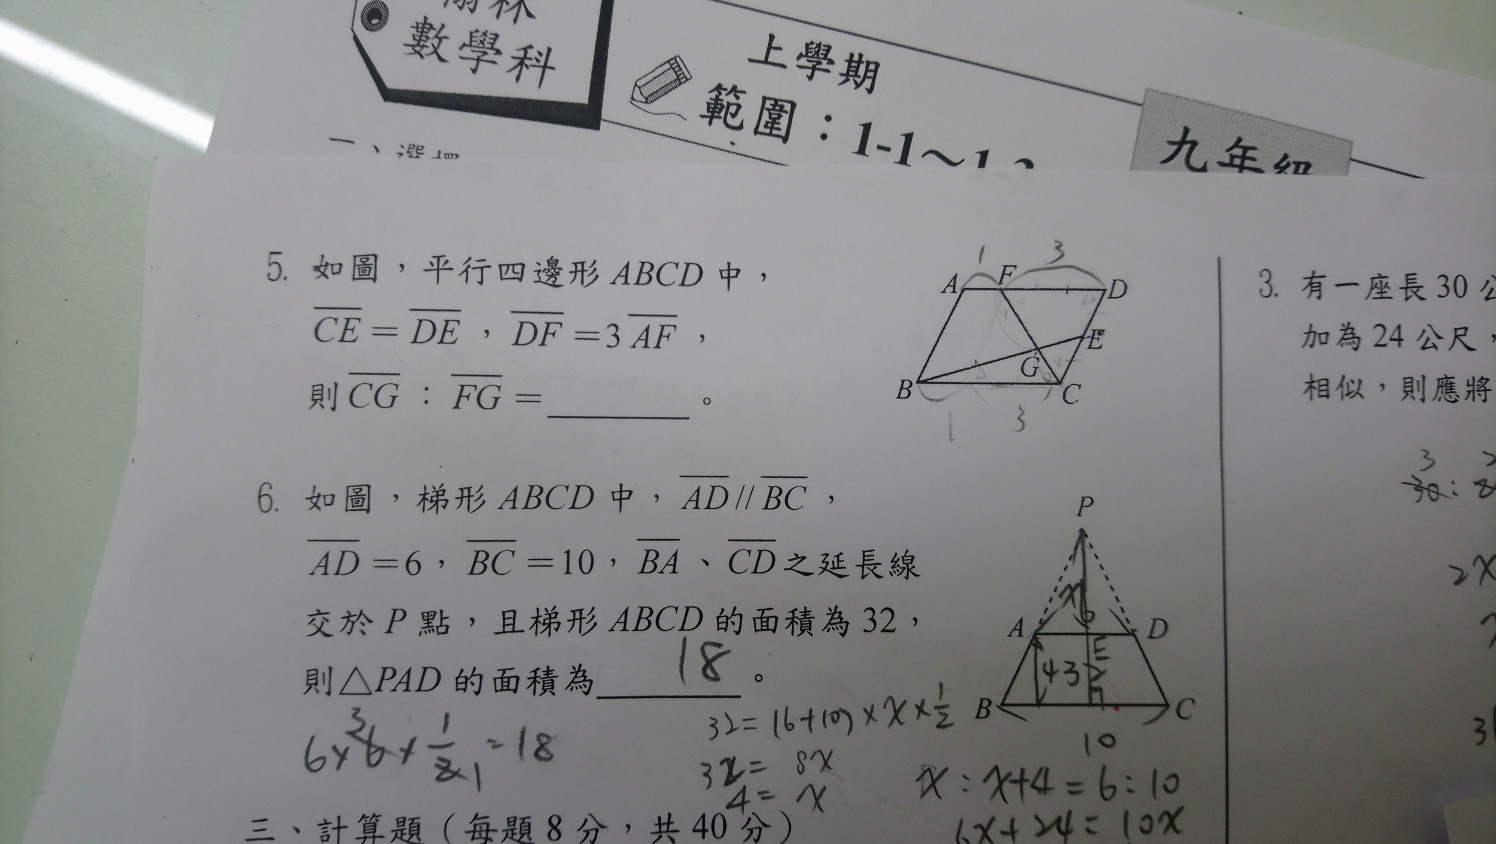 數學科
上學期
範圍：1-1～1
九年級
一、選擇
5. 如圖，平行四邊形ABCD中，
CE＝DE，DF＝3AF，
則CG：FG＝________。
1 3
A F D
E
G
B C
1 3
6. 如圖，梯形ABCD中，AD//BC，
AD＝6，BC＝10，BA、CD之延長線
交於P點，且梯形ABCD的面積為32，
則△PAD的面積為 18 。
P
x 6
A D
E
4 3
B C
10
6×6×1/2=18
3
1
32=(6+10)×x×1/2
32=8x
4=x
x:x+4=6:10
6x+24=10x
三、計算題（每題8分，共40分）
3. 有一座長30公
加為24公尺，
相似，則應將
3
30:
2x